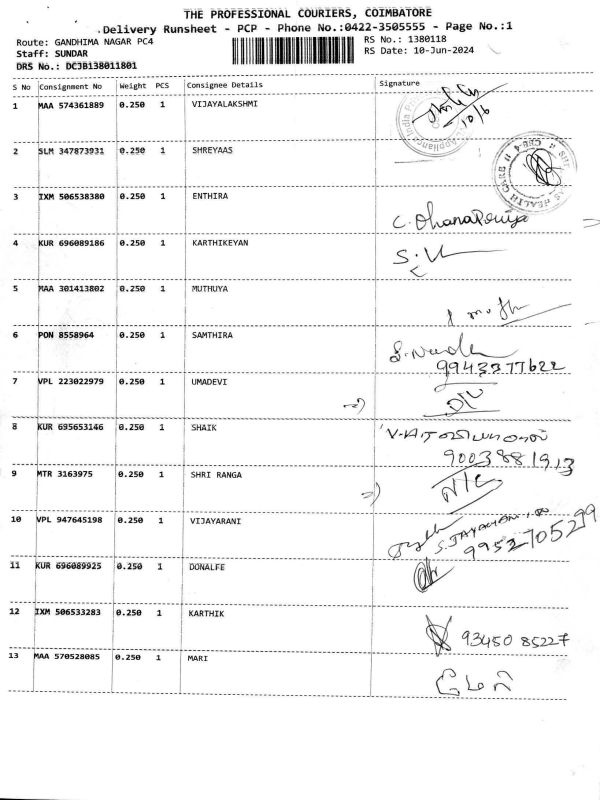 THE PROFESSIONAL COURIERS, COIMBATORE
Delivery Runsheet - PCP - Phone No.:0422-3505555 - Page No.:1
Route: GANDHIMA NAGAR PC4 RS No.: 1380118
Staff: SUNDAR RS Date: 10-Jun-2024
DRS No.: DCJB138011801
S No Consignment No Weight PCS Consignee Details Signature
1 MAA 574361889 0.250 1 VIJAYALAKSHMI
2 SLM 347873931 0.250 1 SHREYAAS
HEALTH CARE
3 IXM 506538380 0.250 1 ENTHIRA
4 KUR 696089186 0.250 1 KARTHIKEYAN
5 MAA 301413802 0.250 1 MUTHUYA
6 PON 8558964 0.250 1 SAMTHIRA
9943377622
7 VPL 223022979 0.250 1 UMADEVI
8 KUR 695653146 0.250 1 SHAIK
9003881913
9 MTR 3163975 0.250 1 SHRI RANGA
10 VPL 947645198 0.250 1 VIJAYARANI
9952705299
11 KUR 696089925 0.250 1 DONALFE
12 IXM 506533283 0.250 1 KARTHIK
93450 85227
13 MAA 570528085 0.250 1 MARI